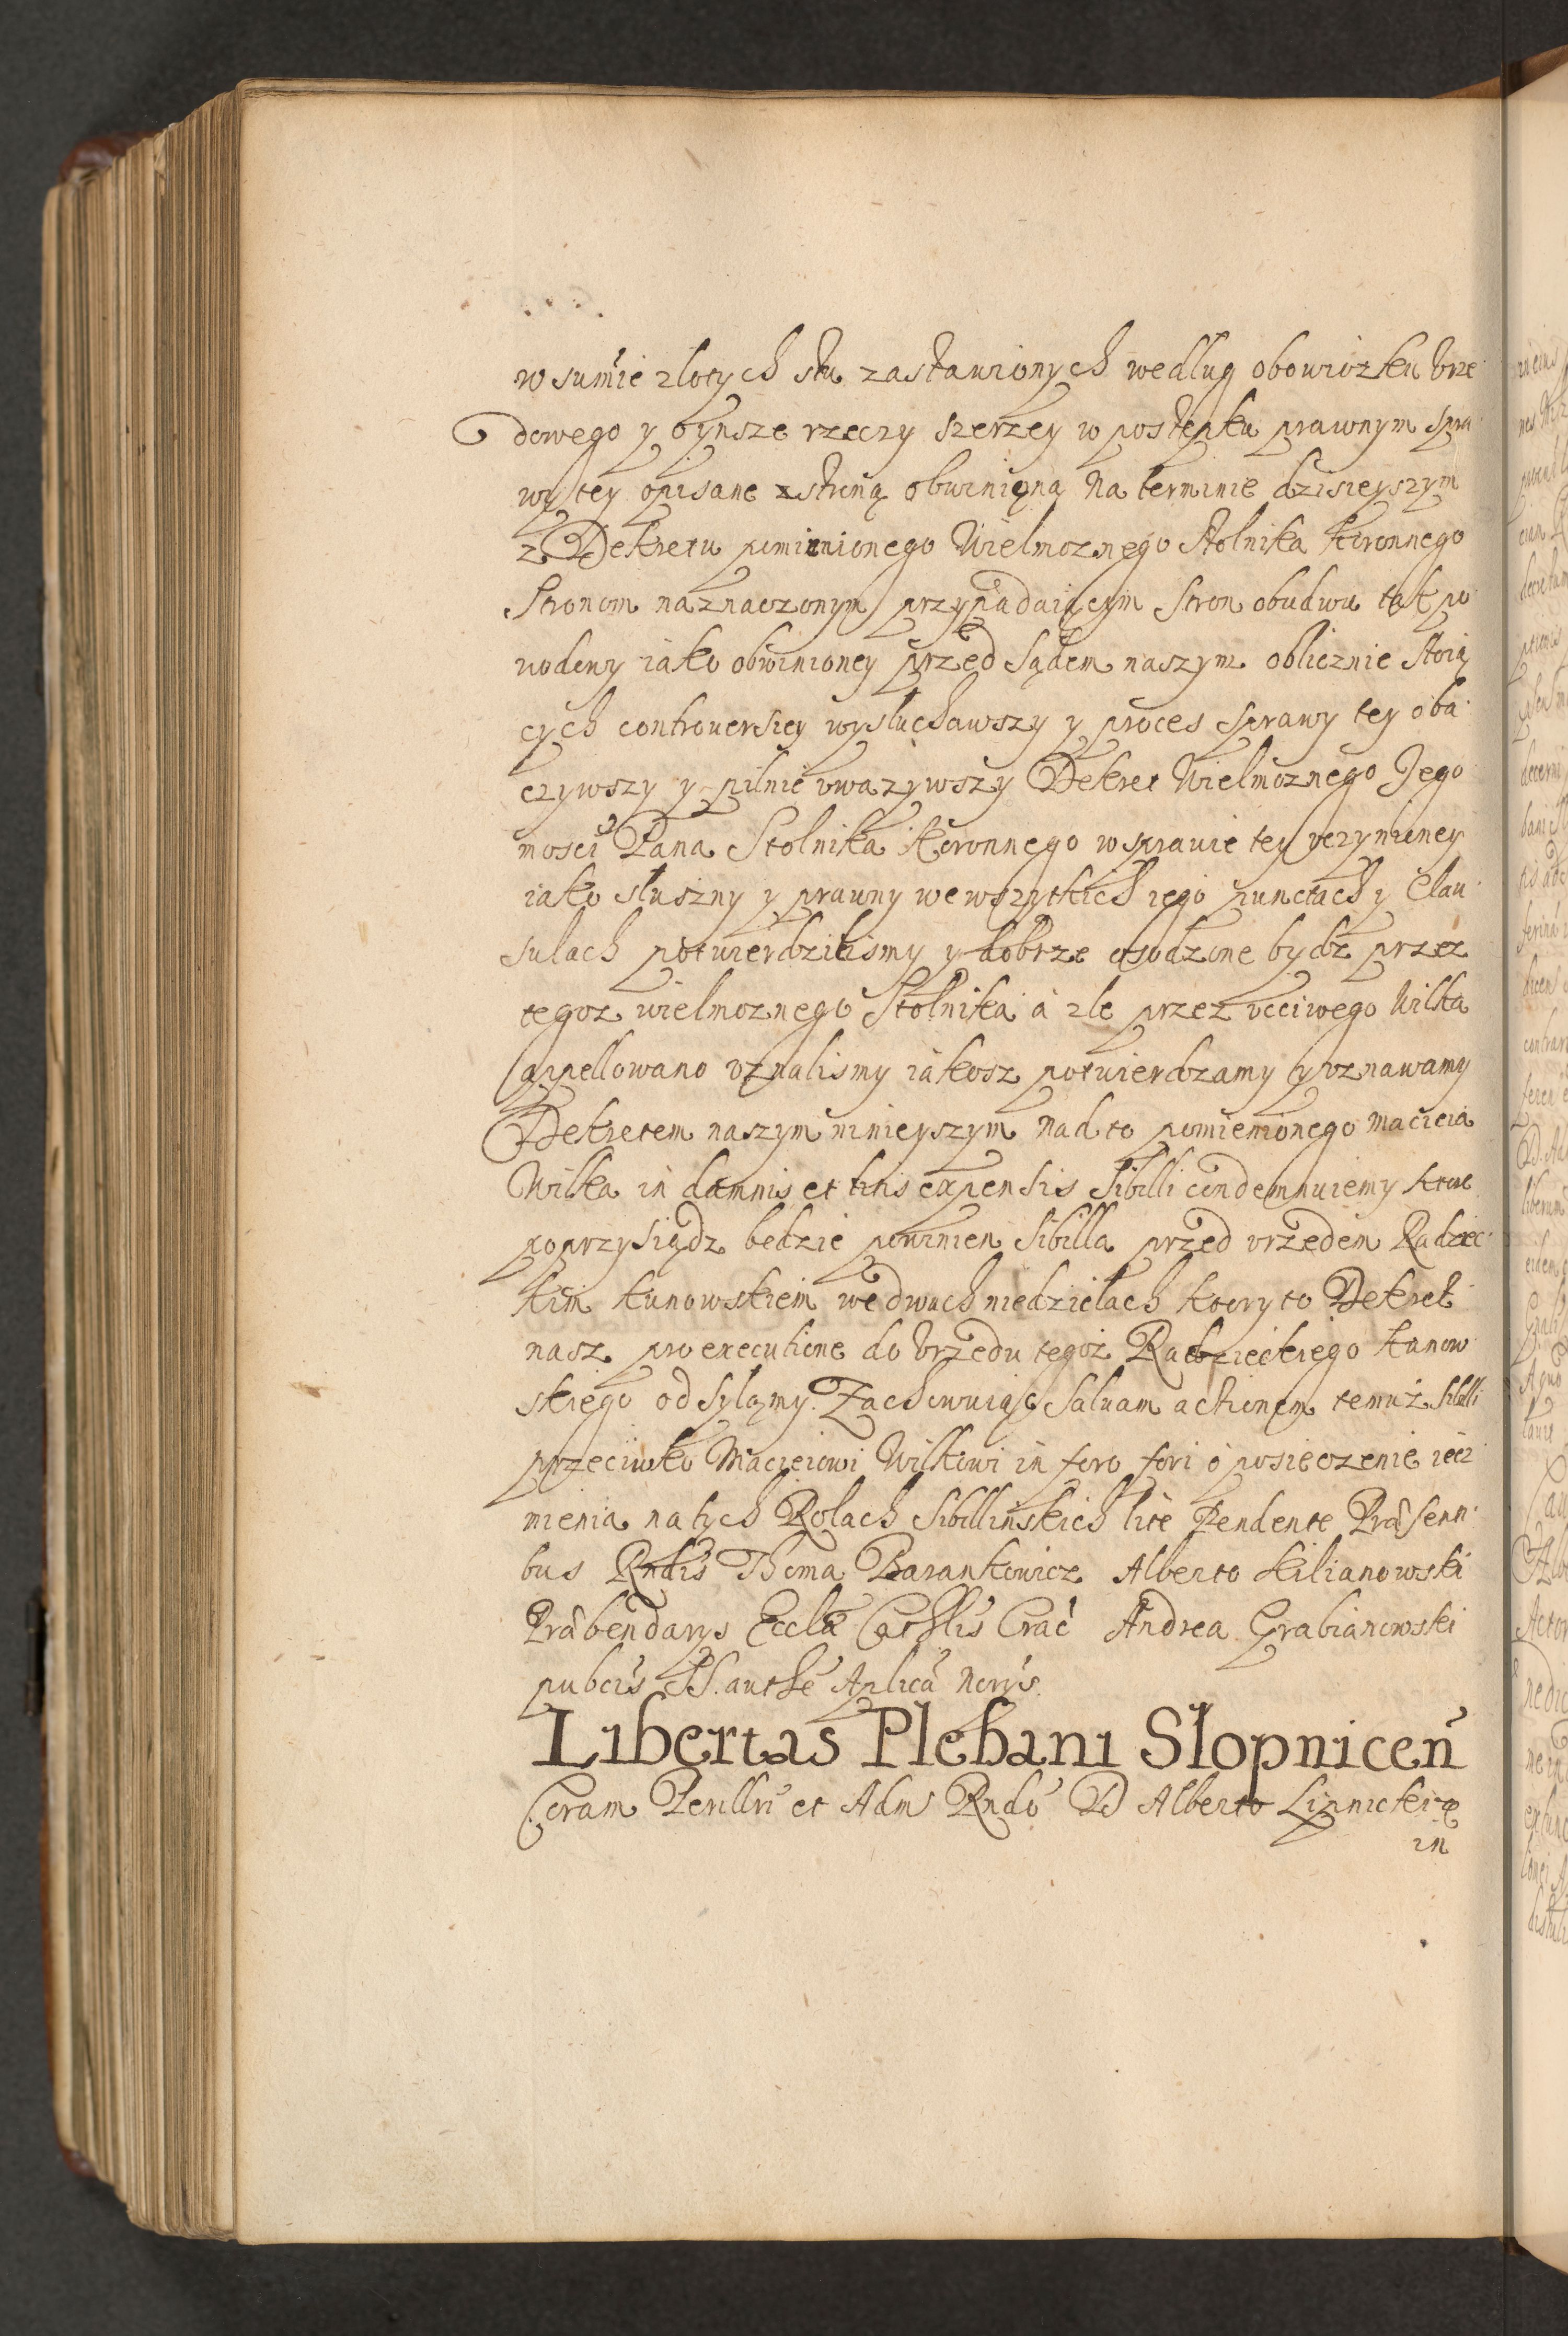 w sumie zlotych stu zastawionych wedlug obowiozku Vrze
dowego y oÿnsze rzeczy szerzey w postepku prawnym spra
wy tey opisane z stroną obwinięną Na terminie dzisieyszym
z Dekretu pomienionego Wielmoznego Stolnika Koronnego
Stronom naznaczonym przypadaiącym Stron obudwu tak po
wodowy iako obwinioney przed Sądem naszym oblicznie Stoią
cych controuersiey wysluchawszy y proces sprawy tey oba
czywszy y pilnie vwazywszy Dekret Wielmoznego Jego
mosci Pana Stolnika Koronnego w sprawie tey vczynioney
iako sluszny y prawny we wszytkich iego punctach y Clau
sulach potwierdzilismy y dobrze osodzone bydz przez
tegoz wielmoznego Stolnika à zle przez vcciwego Wilka
appellowano vznalismy iakosz potwierdzamy y vznawamy
Dekretem naszym ninieyszym nad to pomienionego Macieia
Wilka in damnis et litis expensis Sibilli condemnuiemy ktore
poprzysiądz bedzie powinien Sibilla przed vrzedem Radziec
kim Kunowskiem we dwuch niedzielach ktory to Dekret
nasz pro executione do Vrzedu tegoż Radzieckiego Kunow
skiego odsylamy. Zachowuiąc Saluam actionem temuż Sibilli
przeciwko Macieiowi Wilkowi in foro fori o posieczenie iecz
mienia na tych Rolach Sibillinskich lite Pendente Præsenti
bus Rndis Thoma Barankowicz Alberto Kilianowski
Præbendarys Eccla Cathlis Crac Andrea Grabianowski
pubcis SS. authe Aplica Norys.
Libertas Plebani Slopnicen
Coram Perillri et Adm Rndo D Alberto Lipnicki
in